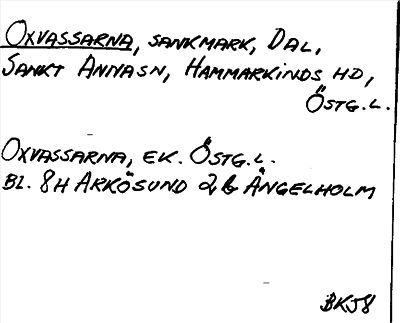 OXVASSARNA, SANKMARK, DAL,
SANKT ANNASN, HAMMARKINDS HD,
ÖSTG.L.
OXVASSARNA, EK. ÖSTG.L.
BL. 8H ARKÖSUND 2b ÄNGELHOLM
BKJ8